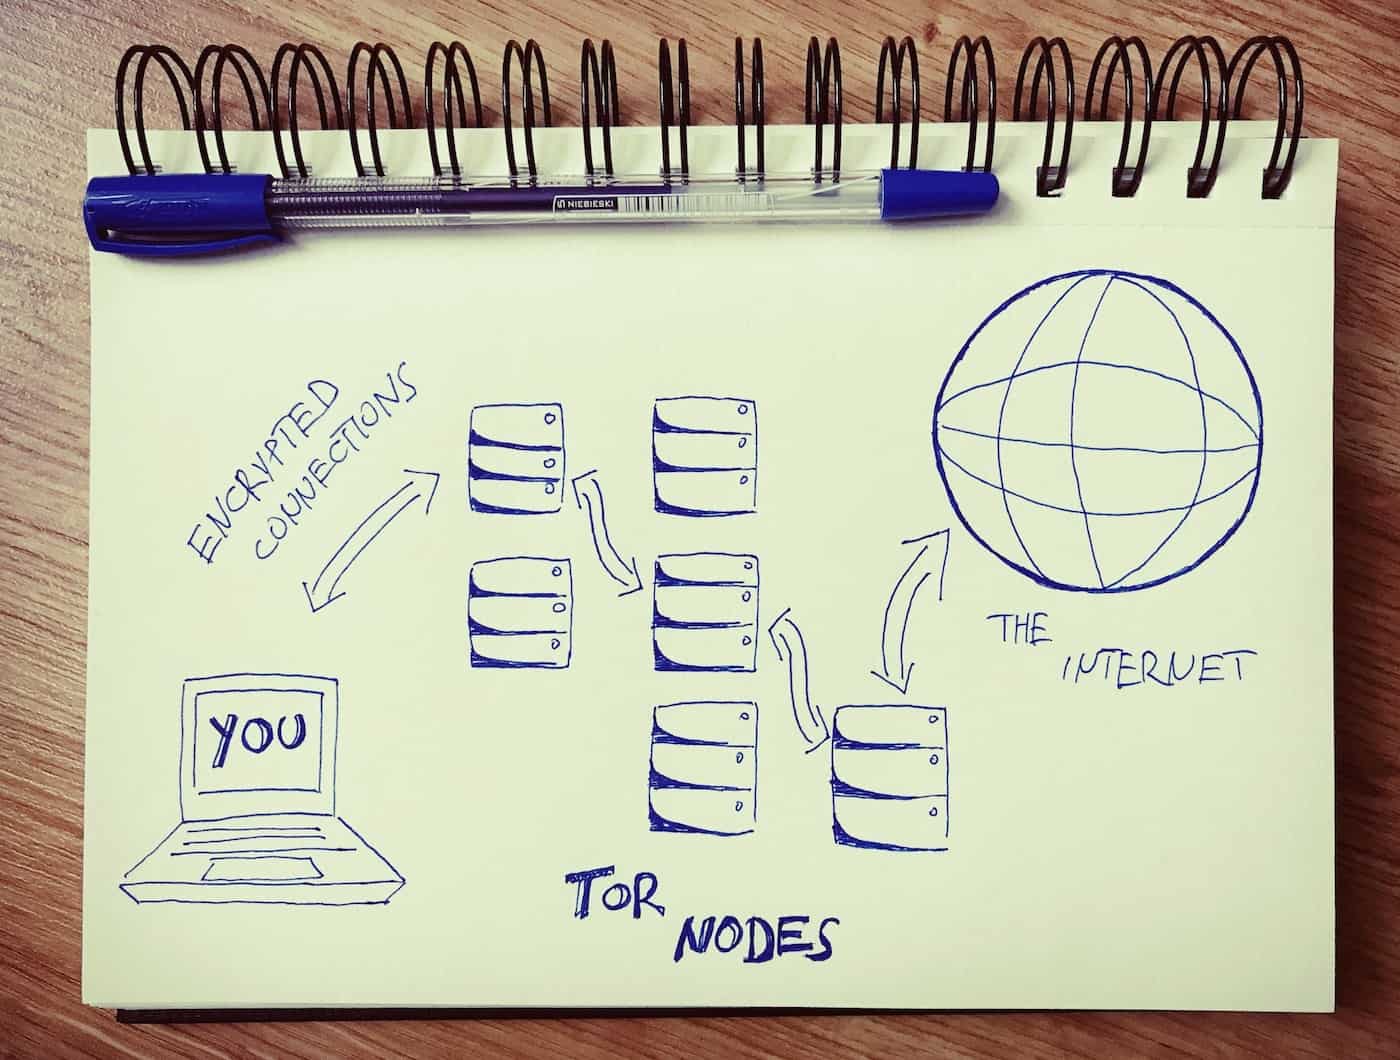 NIEBIESKI
ENCRYPTED
CONNECTIONS
YOU
THE
INTERNET
TOR
NODES